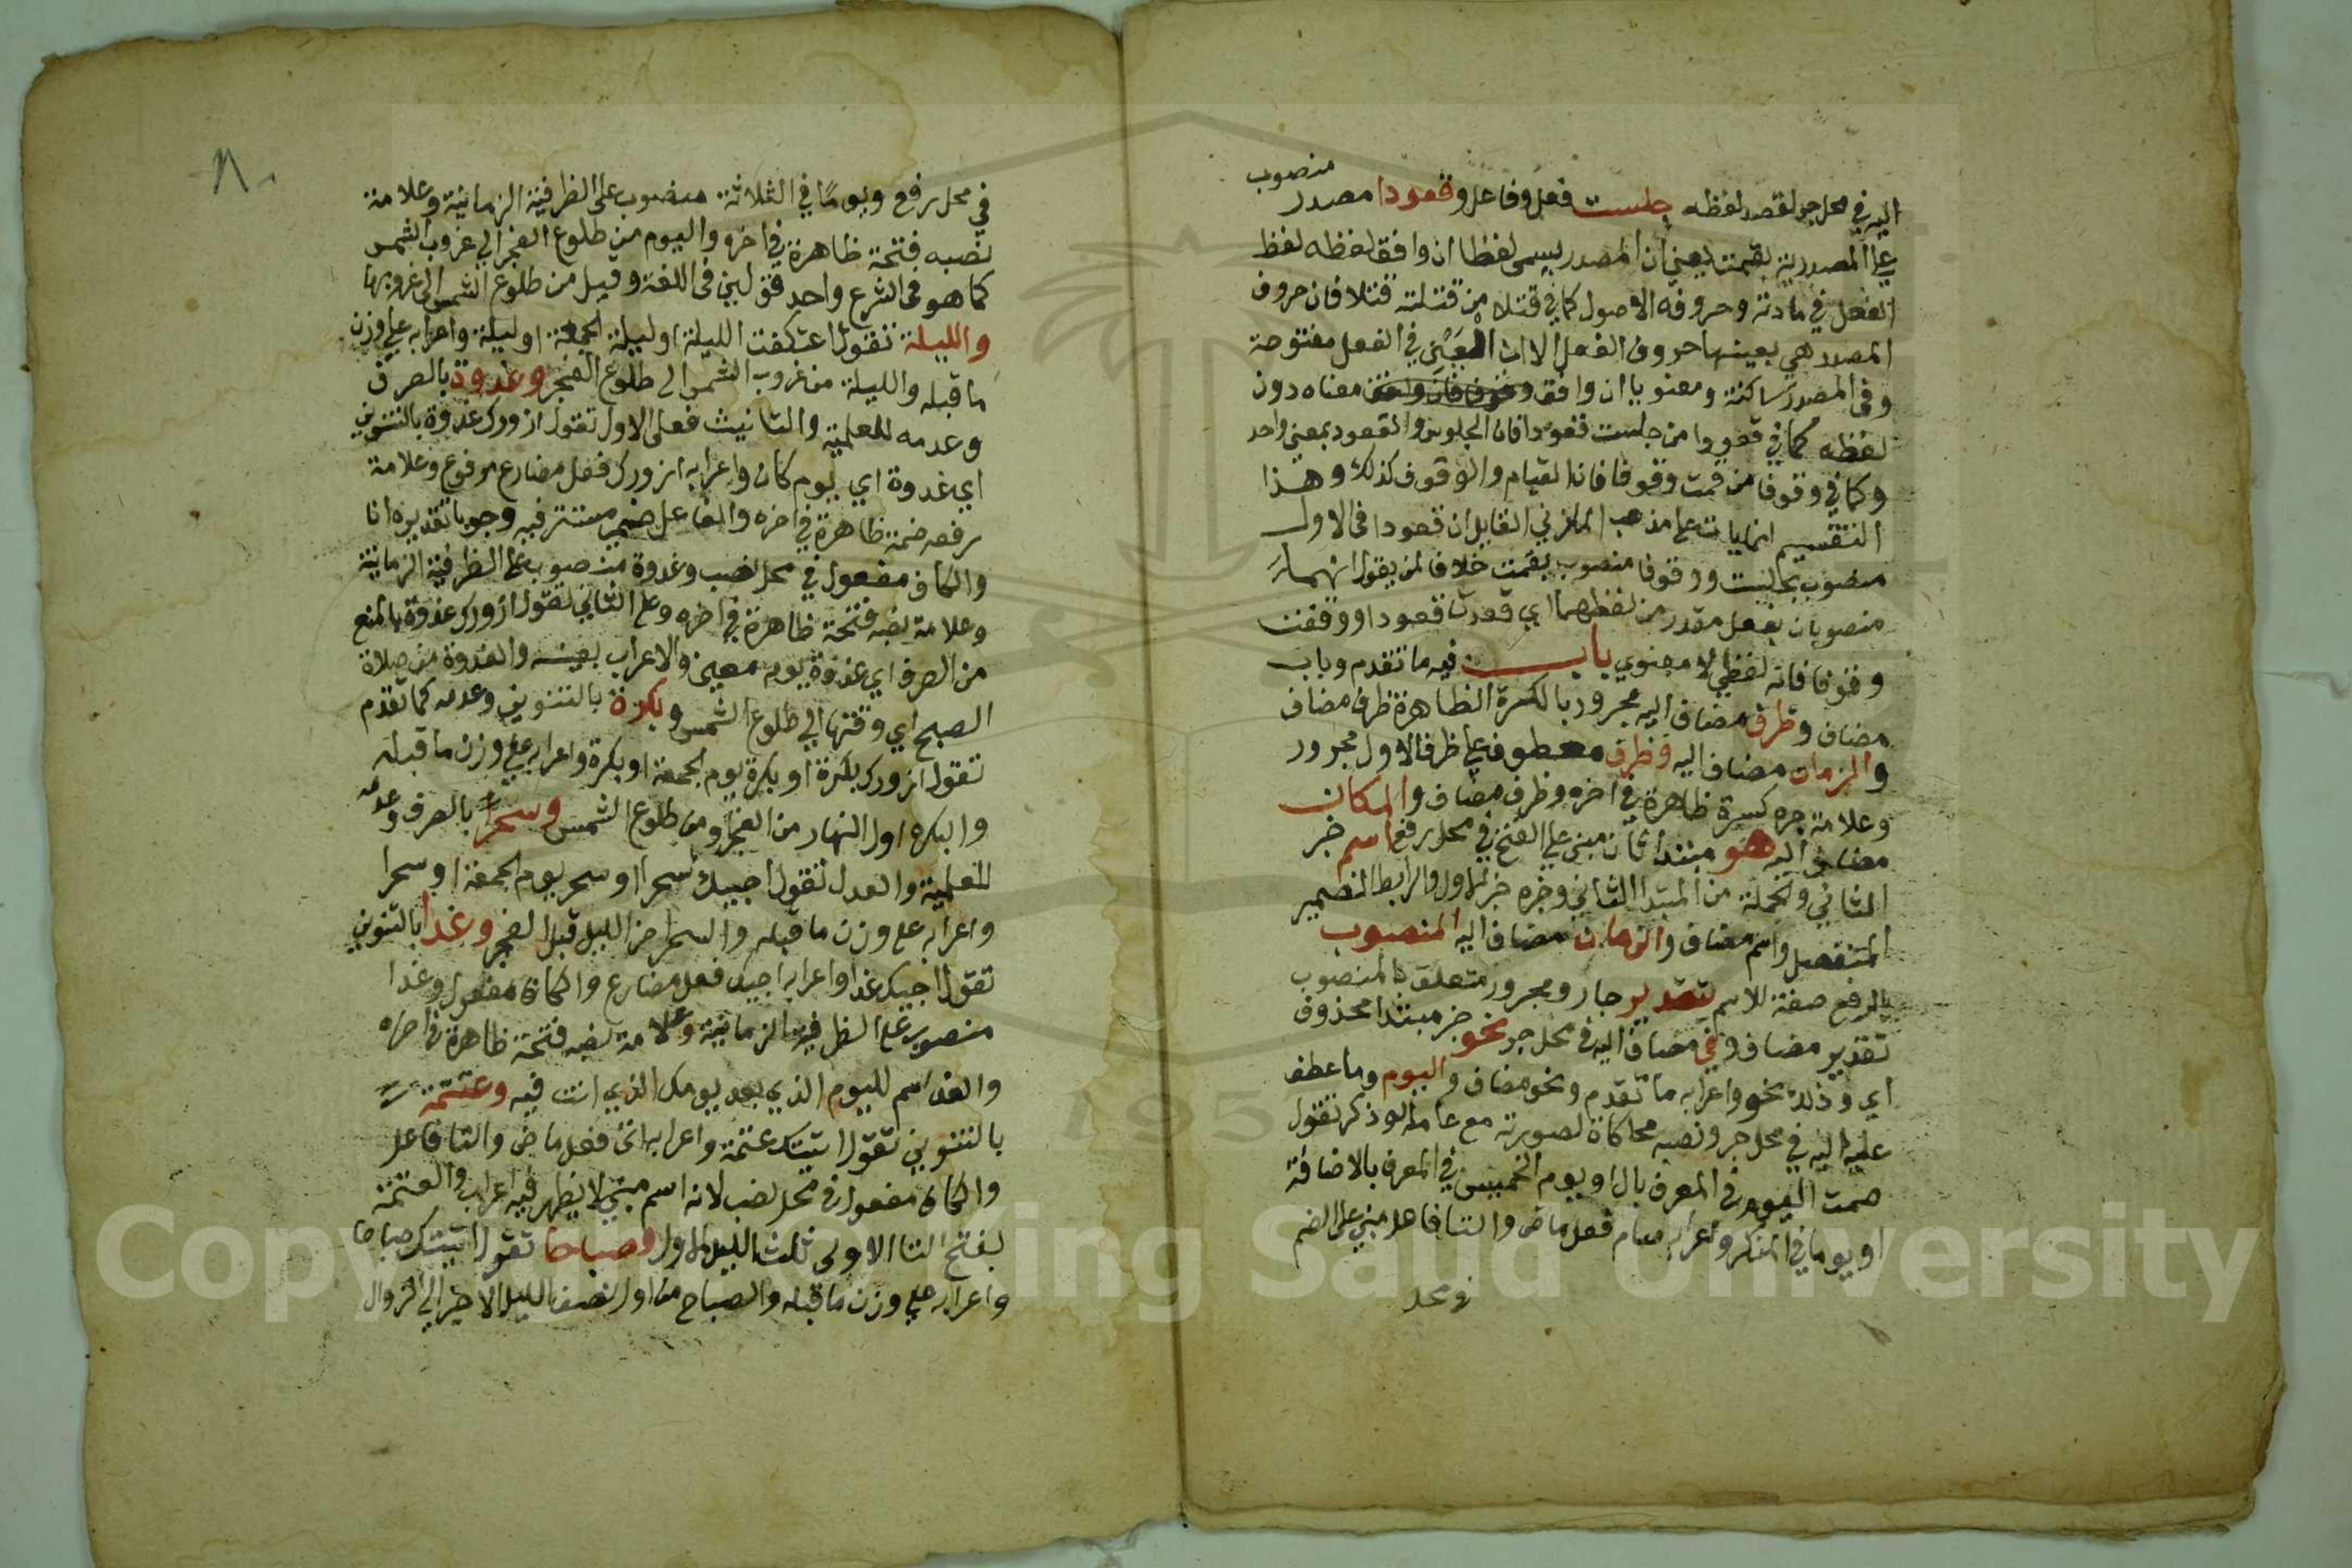 اليه في محل جر لقصد لفظه جلست فعل وفاعل وقعودا مصدر منصوب
على المصدرية بقمت يعني ان المصدر يسمى لفظيا ان وافق لفظه لفظ
الفعل في مادته وحروفه الاصول كما في قتلا من قتلته قتلا فان حروف
المصدر هي بعينها حروف الفعل الا ان العين في الفعل مفتوحة
وفي المصدر ساكنة ومعنويا ان وافق معناه دون
لفظه كما في قعودا من جلست قعودا فان الجلوس والقعود بمعنى واحد
وكما في وقوفا من قمت وقوفا فان القيام والوقوف كذلك وهذا
التقسيم انما يات على مذهب المازني القايل ان قعودا في الاول
منصوب بجلست ووقوفا منصوب بقمت خلافا لمن يقول انهما
منصوبان بفعل مقدر من لفظهما اي قعدت قعودا ووقفت
وقوفا فانه لفظي لا معنوي باب فيه ما تقدم وباب
مضاف وظرف مضاف اليه مجرور بالكسرة الظاهرة ظرف مضاف
والزمان مضاف اليه وظرف معطوف على ظرف الاول مجرور
وعلامة جره كسرة ظاهرة في اخره وظرف مضاف والمكان
مضاف اليه هو مبتدا ثان مبني على الفتح في محل رفع اسم خبر
الثاني والجملة من المبتدا الثاني وخبره خبر الاول والرابط الضمير
المنفصل واسم مضاف والزمان مضاف اليه المنصوب
بالرفع صفة للاسم بتقدير جار ومجرور متعلق بالمنصوب
تقدير مضاف وفي مضاف اليه في محل جر نحو خبر مبتدا محذوف
اي وذلك نحو واعرابه ما تقدم ونحو مضاف واليوم وما عطف
عليه اليه في محل جر ونصبه محاكاة لصورته مع عامله لو ذكر تقول
صمت اليوم في المعرف بال او يوم الخميس في المعرف بالاضافة
او يوما في المنكر واعرابه صام فعل ماض والتا فاعل مبني على الضم
في محل
في محل رفع ويوما في الثلاثة منصوب على الظرفية الزمانية وعلامة
نصبه فتحة ظاهرة في اخره واليوم من طلوع الفجر الى غروب الشمس
كما هو في الشرع واحد قولين في اللغة وقيل من طلوع الشمس الى غروبها
والليلة تقول اعتكفت الليلة او ليلة الجمعة او ليلة واعرابه على وزن
ما قبله والليلة من غروب الشمس الى طلوع الفجر وغدوة بالصرف
وعدمه للعلمية والتانيث فعلى الاول تقول ازورك غدوة بالتنوين
اي غدوة اي يوم كان واعرابه ازورك فعل مضارع مرفوع وعلامة
رفعه ضمة ظاهرة في اخره والفاعل ضمير مستتر فيه وجوبا تقديره انا
والكاف مفعول في محل نصب وغدوة منصوب على الظرفية الزمانية
وعلامة نصبه فتحة ظاهرة في اخره وعلى الثاني تقول ازورك غدوة بالمنع
من الصرف اي غدوة يوم معين والاعراب بعينه والغدوة من صلاة
الصبح اي وقتها الى طلوع الشمس وبكرة بالتنوين وعدمه كما تقدم
تقول ازورك بكرة او بكرة يوم الجمعة او بكرة واعرابه على وزن ما قبله
والبكرة اول النهار من الفجر او من طلوع الشمس وسحرا بالصرف وعدمه
للعلمية والعدل تقول اجيئك سحرا او سحر يوم الجمعة او سحرا
واعرابه على وزن ما قبله والسحر اخر الليل قبل الفجر وغدا بالتنوين
تقول اجيك غدا واعرابه اجيك فعل مضارع والكاف مفعول وغدا
منصوب على الظرفية الزمانية وعلامة نصبه فتحة ظاهرة في اخره
والغد اسم لليوم الذي بعد يومك الذي انت فيه وعتمة
بالتنوين تقول اتيتك عتمة واعرابه اتى فعل ماض والتا فاعل
والكاف مفعول في محل نصب لانه اسم مبني لا يظهر فيه اعراب والعتمة
بفتح التا الاولى ثلث الليل الاول وصباحا تقول اتيتك صباحا
واعرابه على وزن ما قبله والصباح من اول نصف الليل الاخير الى الزوال
Copyright © King Saud University